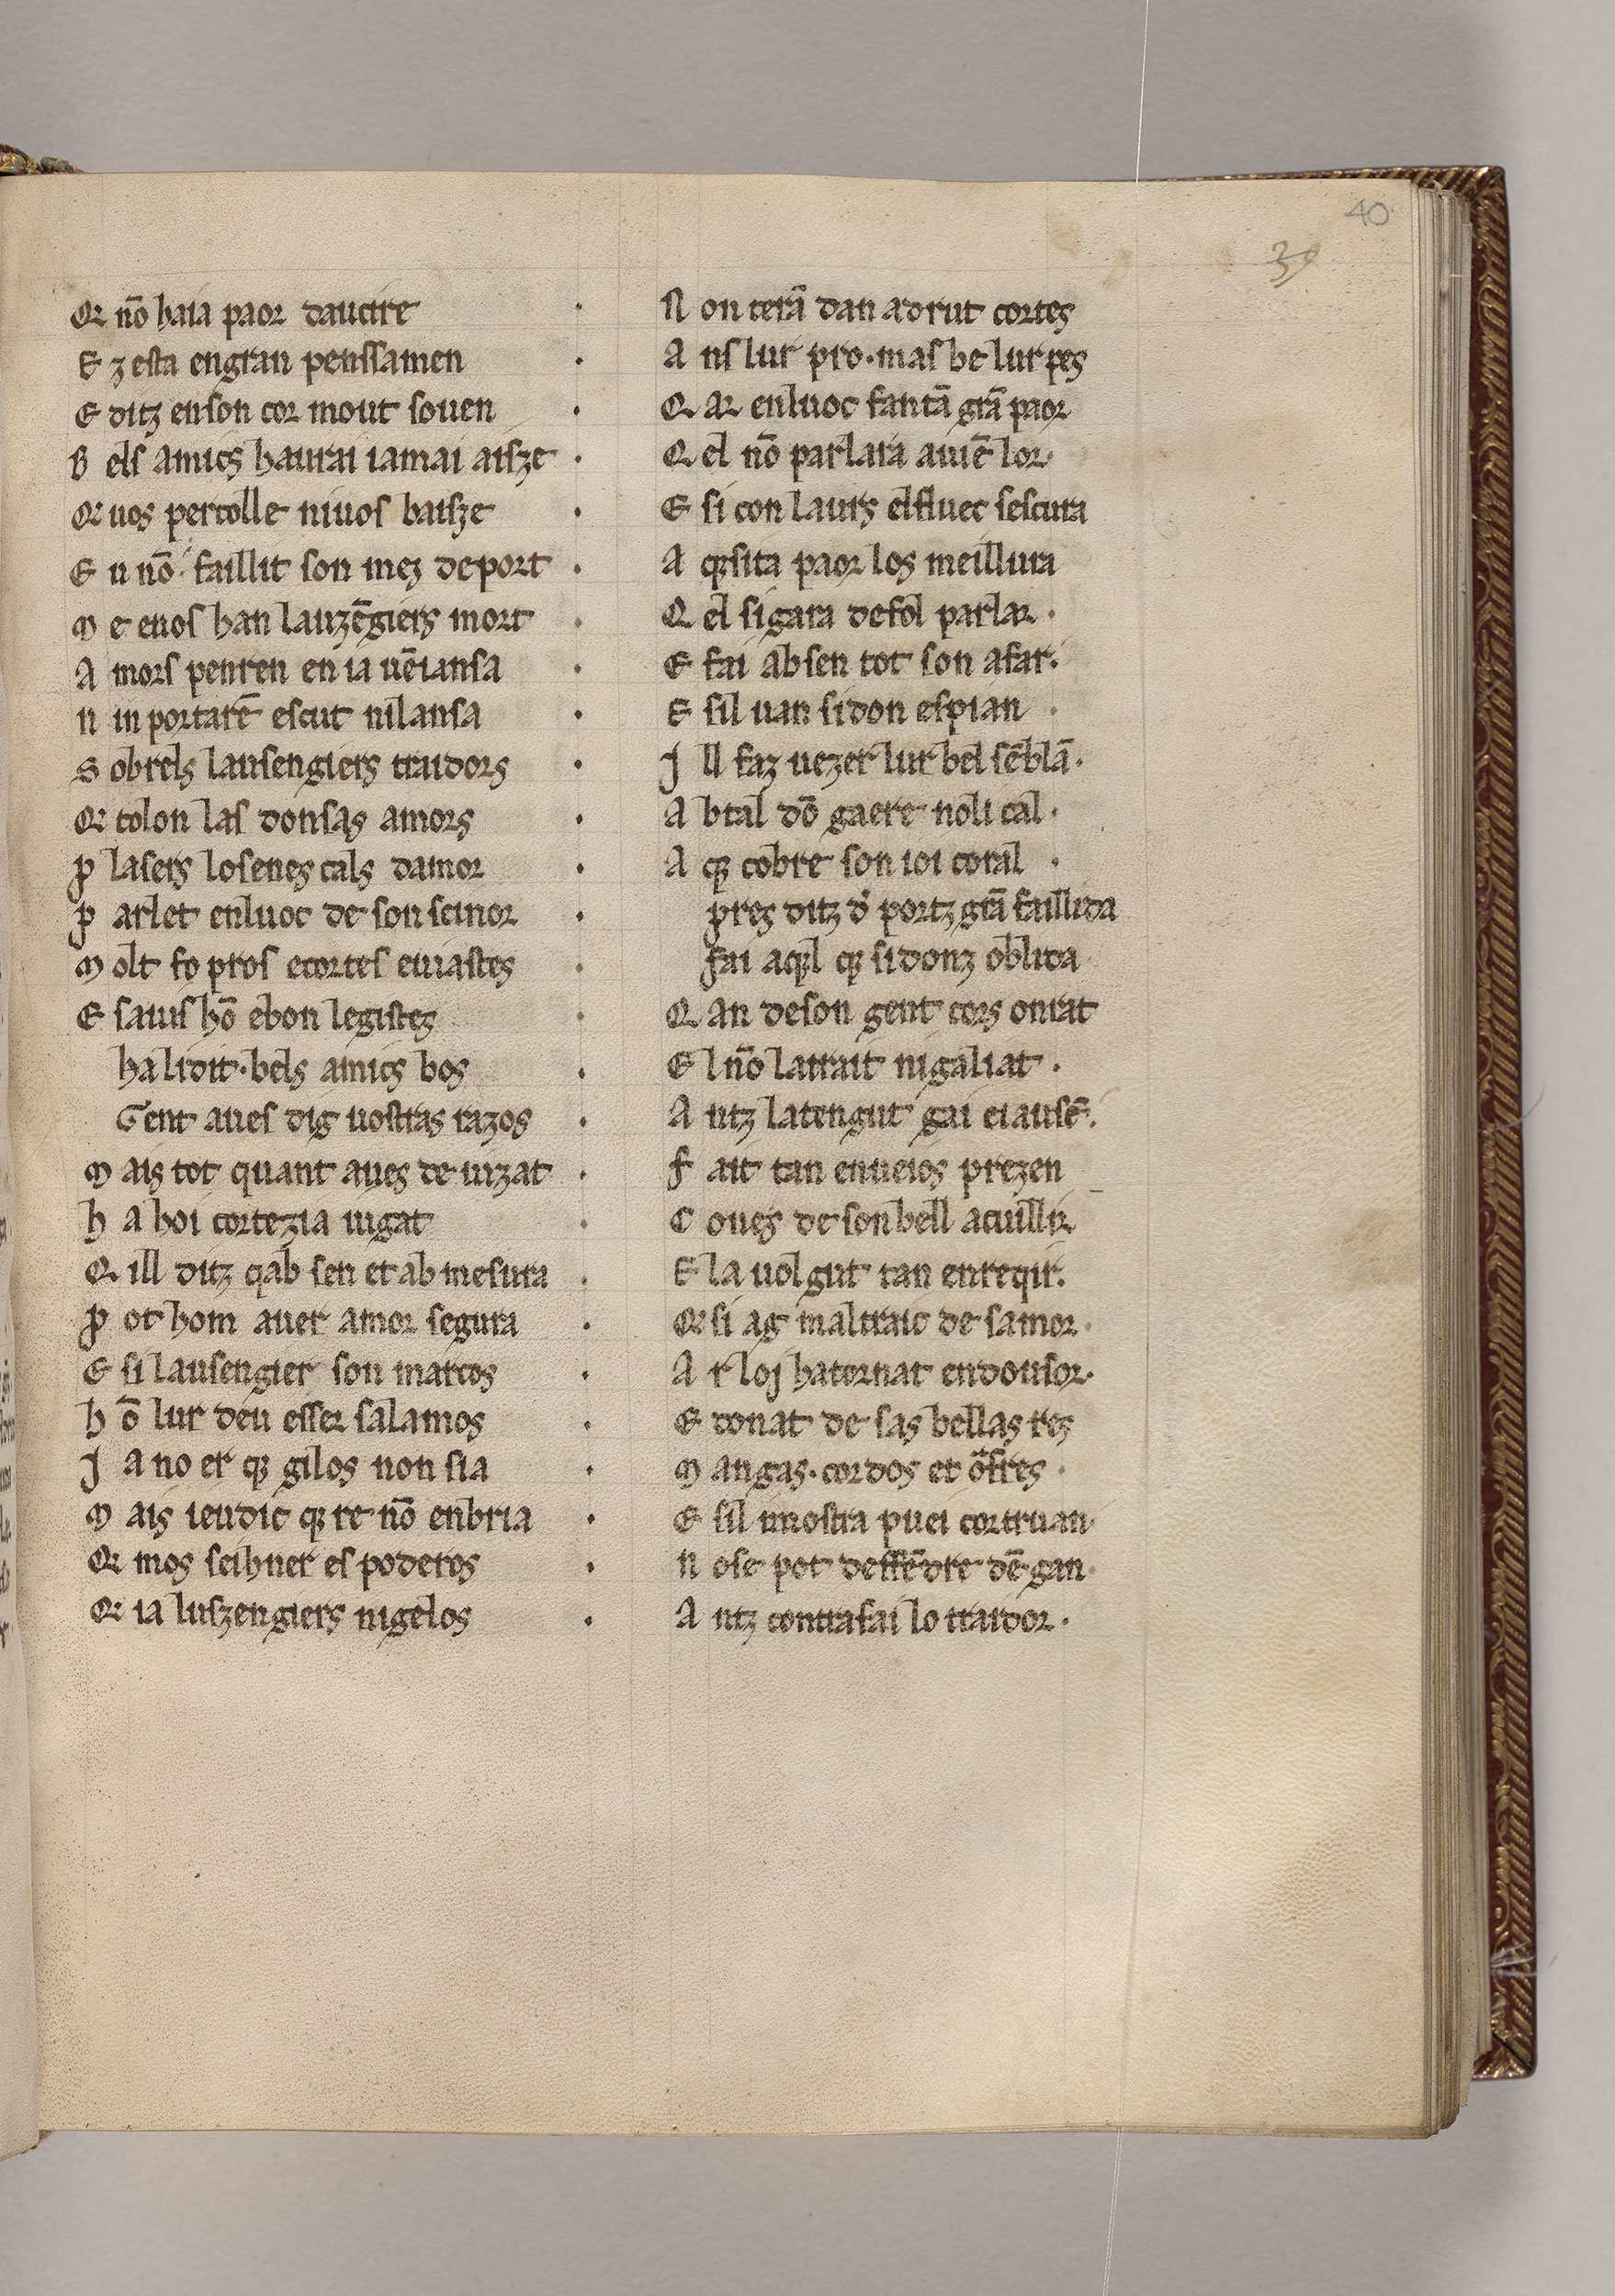 40
39
Qe nō haia paor daucire
E z esta engran penssamen
E ditz enson cor mout souen
B els amics haurai iamai aisze
Qe uos percolle niuos baisze
E u nō faillit son mez deport
M e euos han lauzēgiers mort
A mors penren en ia uēiansa
N in portarē escut nilansa
S obrels lausengiers traidors
Qe tolon las donsas amors
P lasers losenescals damor
P arlet enluoc de son seinor
M olt fo pros ecortes euiastes
E saius hō ebon legistez
ha li dit · bels amics bos
Gent aues dig uostras razos
M ais tot quant aues de uizat
h a hoi cortezia iugat
Q ill ditz qab sen et ab mesura
P ot hom auer amor segura
E si lausengier son marcos
h ō lur deu esser salamos
J a no er qe gilos non sia
M ais ieudic qe re nō enbria
Qe mos seihner es poderos
Qe ia luszengiers nigelos
N on terā dan adrut cortes
A ns lur pro · mas be lur pes
Q ar enluoc fantā grā paor
Q el nō parlara auuē lor
E si con lauis elfluec sescura
A qesita paor los meillura
Q el si gara defol parlar ·
E fai absen tot son afar ·
E sil uan sidon espian
J ll faz uezer lur bel sēblā ·
A btal dō gaere noli cal ·
A qe cobre son ioi coral ·
pres ditz d' portz grā faillida
fai aqel qe sidonz oblida
Q an deson gent cors onrat
E l nō latrait nigaliat ·
A utz latengut gai eiausē ·
F ait tan enueios prezen
C oues de son bell acuillir
E la uolgut tan enreqir ·
Qe si ag maltraic de samor
A r loj hatornat endousor ·
E donat de sas bellas res
M angas · cordos et ōfres
E sil mostra puei cortruan
N ose pot deffēdre dē gan
A utz contrafai lo traidor ·